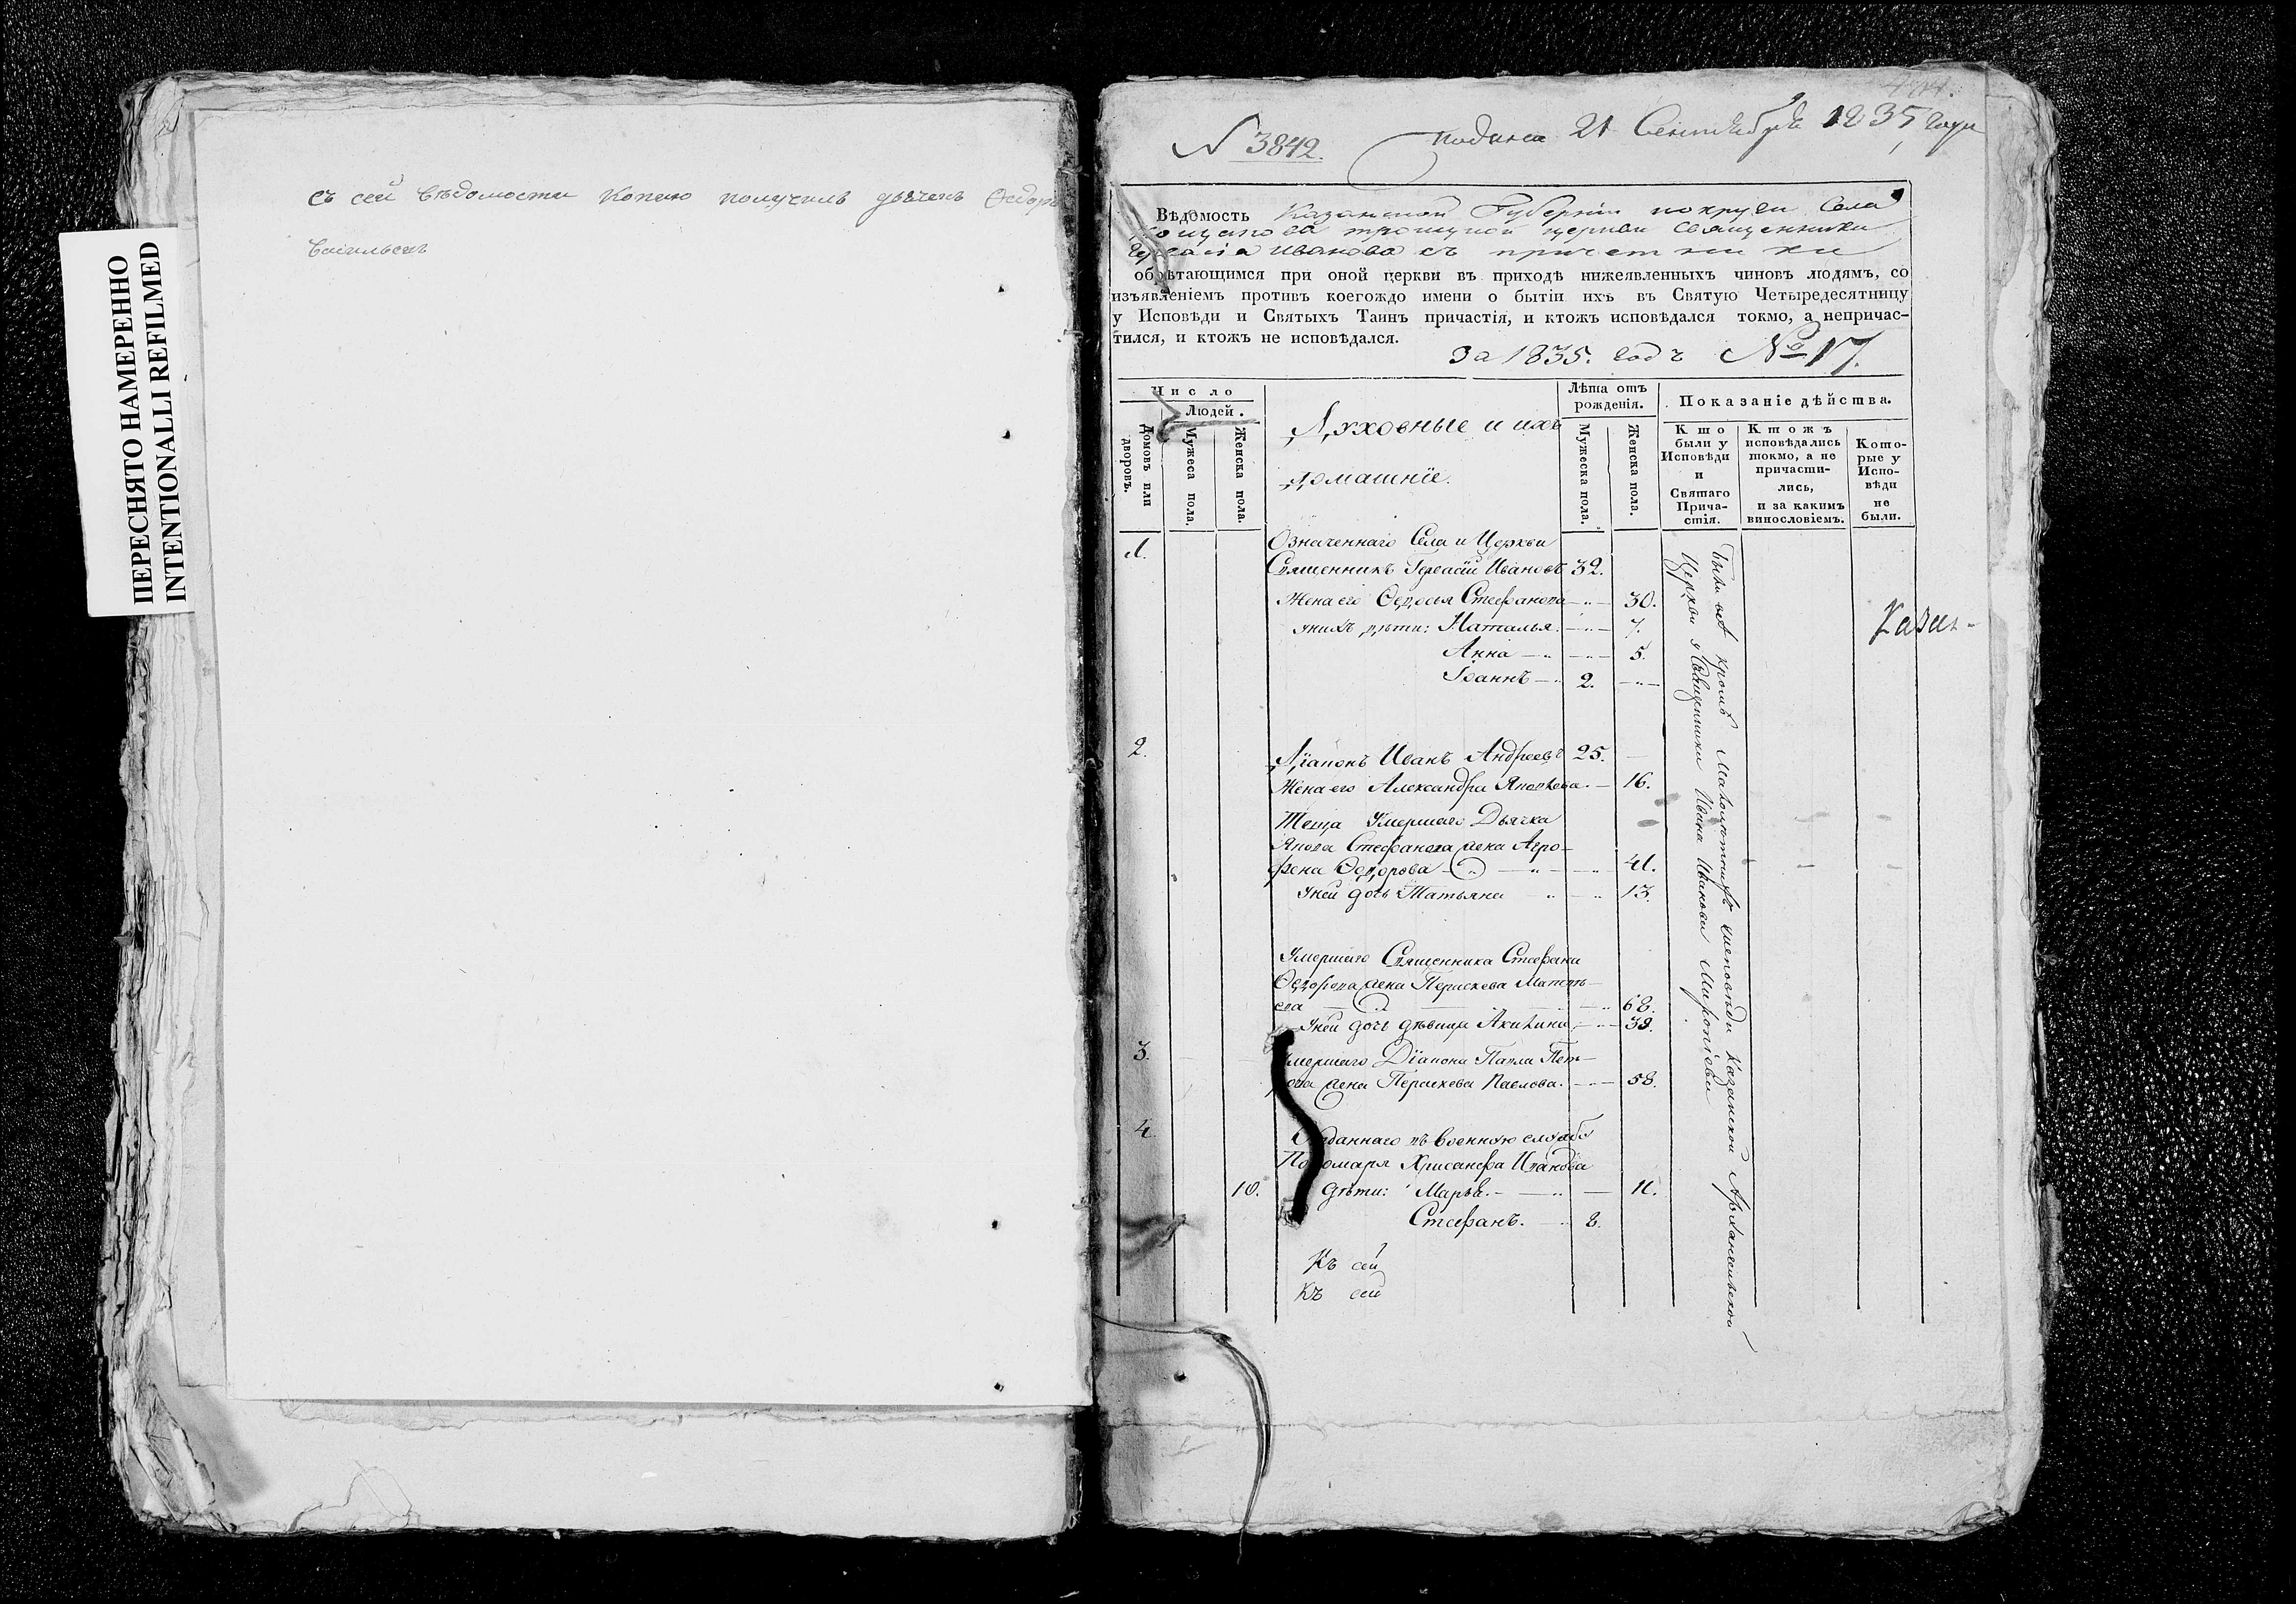 съ сей вѣдомости копию получилъ дьячекъ Ѳедоръ
Васильевъ
ПЕРЕСНЯТО НАМЕРЕННО
INTENTIONALLI REFILMED
N 3842.
подана 21 Сентября 1835 года
Вѣдомость Казанской Губернiи округи Села
троицкой церкви Священника
Иванова съ причетники
обрѣтающимся при оной церкви въ приходѣ нижеявленныхъ чиновъ людямъ, со
изъявленіемъ противъ коегождо имени о бытіи ихъ въ Святую Четыредесятницу
у Исповѣди и Святыхъ Таинъ причастія, и ктожъ исповѣдался токмо, а непричас-
тился, и ктожъ не исповѣдался.
За 1835. годъ № 17.
Число
Людей.
Домовъ или дворовъ.
Мужеса пола.
Женска пола.
Духовные и ихъ
домашніе.
Лѣта отъ
рожденія.
Мужеска пола.
Женска пола.
Показаніе дѣйства.
Кто
были у
Исповѣди
и
Святаго
Прича-
стія.
Ктожъ
исповѣдались
токмо, а не
причасти-
лись,
и за какимъ
винословіемъ.
Кото-
рые у
Испо-
вѣди
не
были.
1.
Означеннаго Села и Церкви
Священникъ Герасій Ивановъ 32.
Жена его Ѳедосья Стефанова 30.
у нихъ дѣти: Наталья 7.
Анна 5.
Іоаннъ 2.
Были всѣ кромѣ Малолѣтнихъ у исповѣди Казанской Архангельской
Церкви у Священника Ивана Иванова
2.
Діаконъ Иванъ Андреевъ 25.
Жена его Александра Яковлева 16.
Теща Умершаго Дьячка
Якова Стефанова жена Агро-
фена Ѳедорова 41.
У ней дочь Татьяна 13.
Умершаго Священника Стефана
Ѳедорова жена Пераскева Матвѣ-
ева 68.
У ней дочь дѣвица Акилина 38.
3.
Умершаго Діакона Павла Пет-
рова жена Пераскева Павлова. 58.
4.
Отданнаго въ военную службу
Пономаря Хрисанфа Иванова
10. дѣти: Марья. 11.
Стефанъ. 8.
Къ сей
Къ сей
Казан-